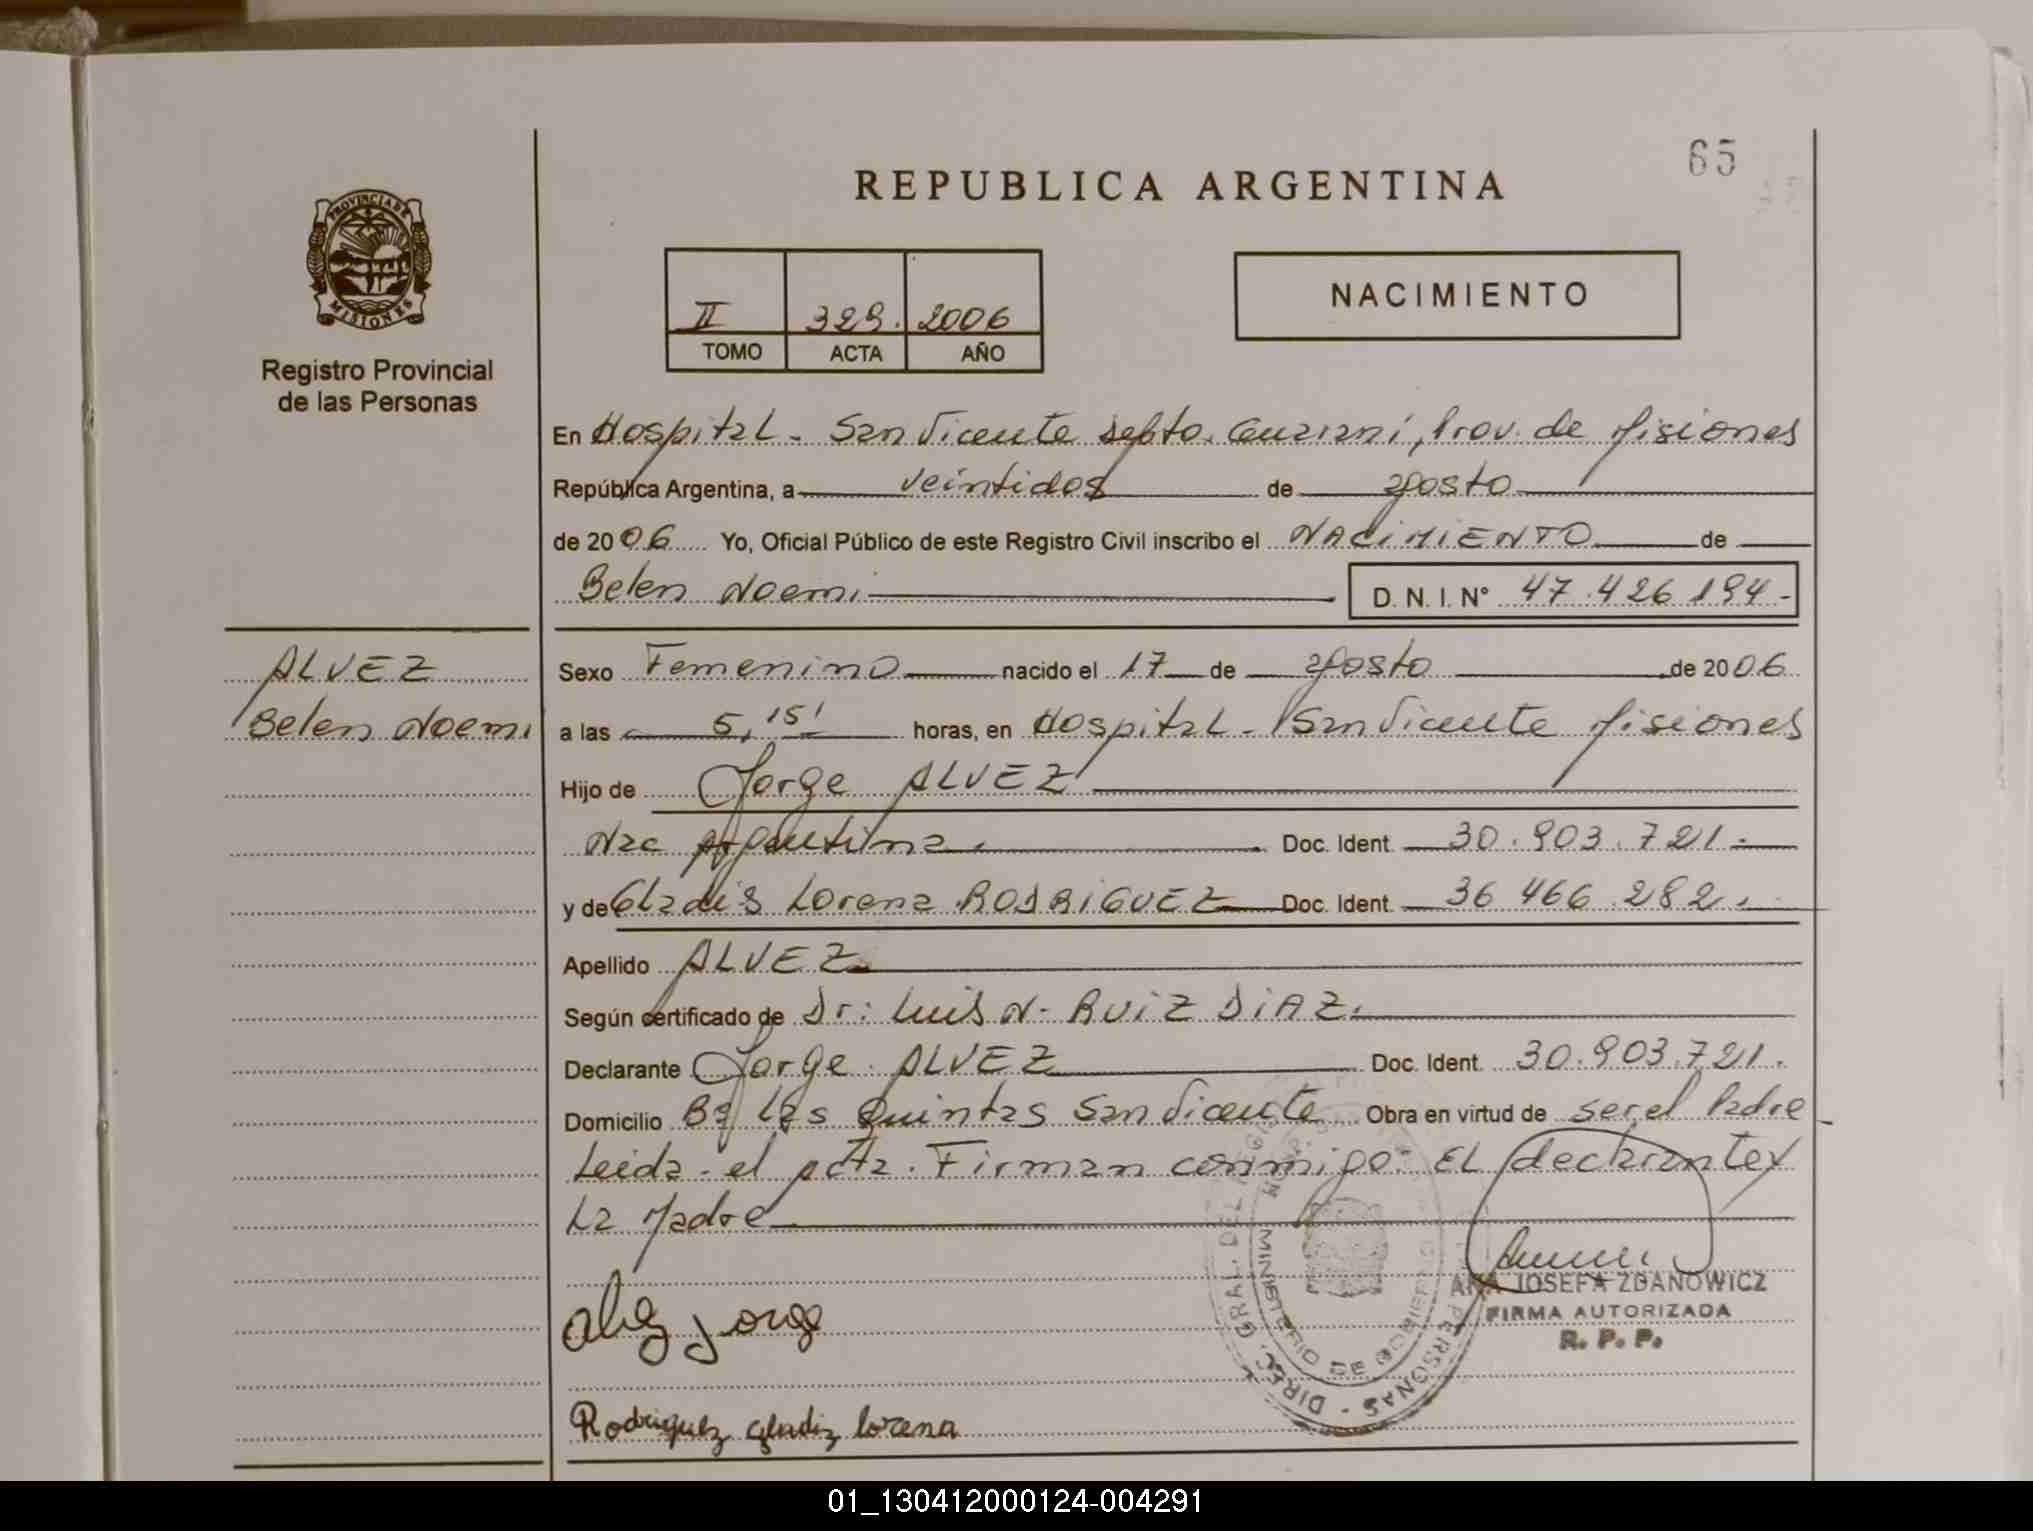 65
REPUBLICA ARGENTINA
PROVINCIA DE
MISIONES
Registro Provincial
de las Personas
II 329. 2006
TOMO ACTA AÑO
NACIMIENTO
En Hospital - San Vicente Depto. Guarani, Prov. de Misiones
República Argentina, a veintidos de agosto
de 2006 Yo, Oficial Público de este Registro Civil inscribo el NACIMIENTO de
Belen Noemi D.N.I. N° 47.426.194-
ALVEZ
Belen Noemi
Sexo Femenino nacido el 17 de agosto de 2006
a las 5,15' horas, en Hospital - San Vicente Misiones
Hijo de Jorge ALVEZ
Nac Argentina. Doc. Ident. 30.903.721.
y de Gladis Lorena RODRIGUEZ Doc. Ident. 36 466 282.
Apellido ALVEZ
Según certificado de Dr: Luis N. RUIZ DIAZ.
Declarante Jorge ALVEZ Doc. Ident. 30.903.721.
Domicilio Bº Las Quintas San Vicente Obra en virtud de ser el Padre
Leida - el acta. Firman conmigo: EL declarante y
La Madre
Jorge
ANA JOSEFA ZBANOWICZ
FIRMA AUTORIZADA
R. P. P.
DIREC. GRAL. DEL PERSONAS
MINISTERIO DE GOBIERNO
Rodriguez gladiz lorena
01_130412000124-004291